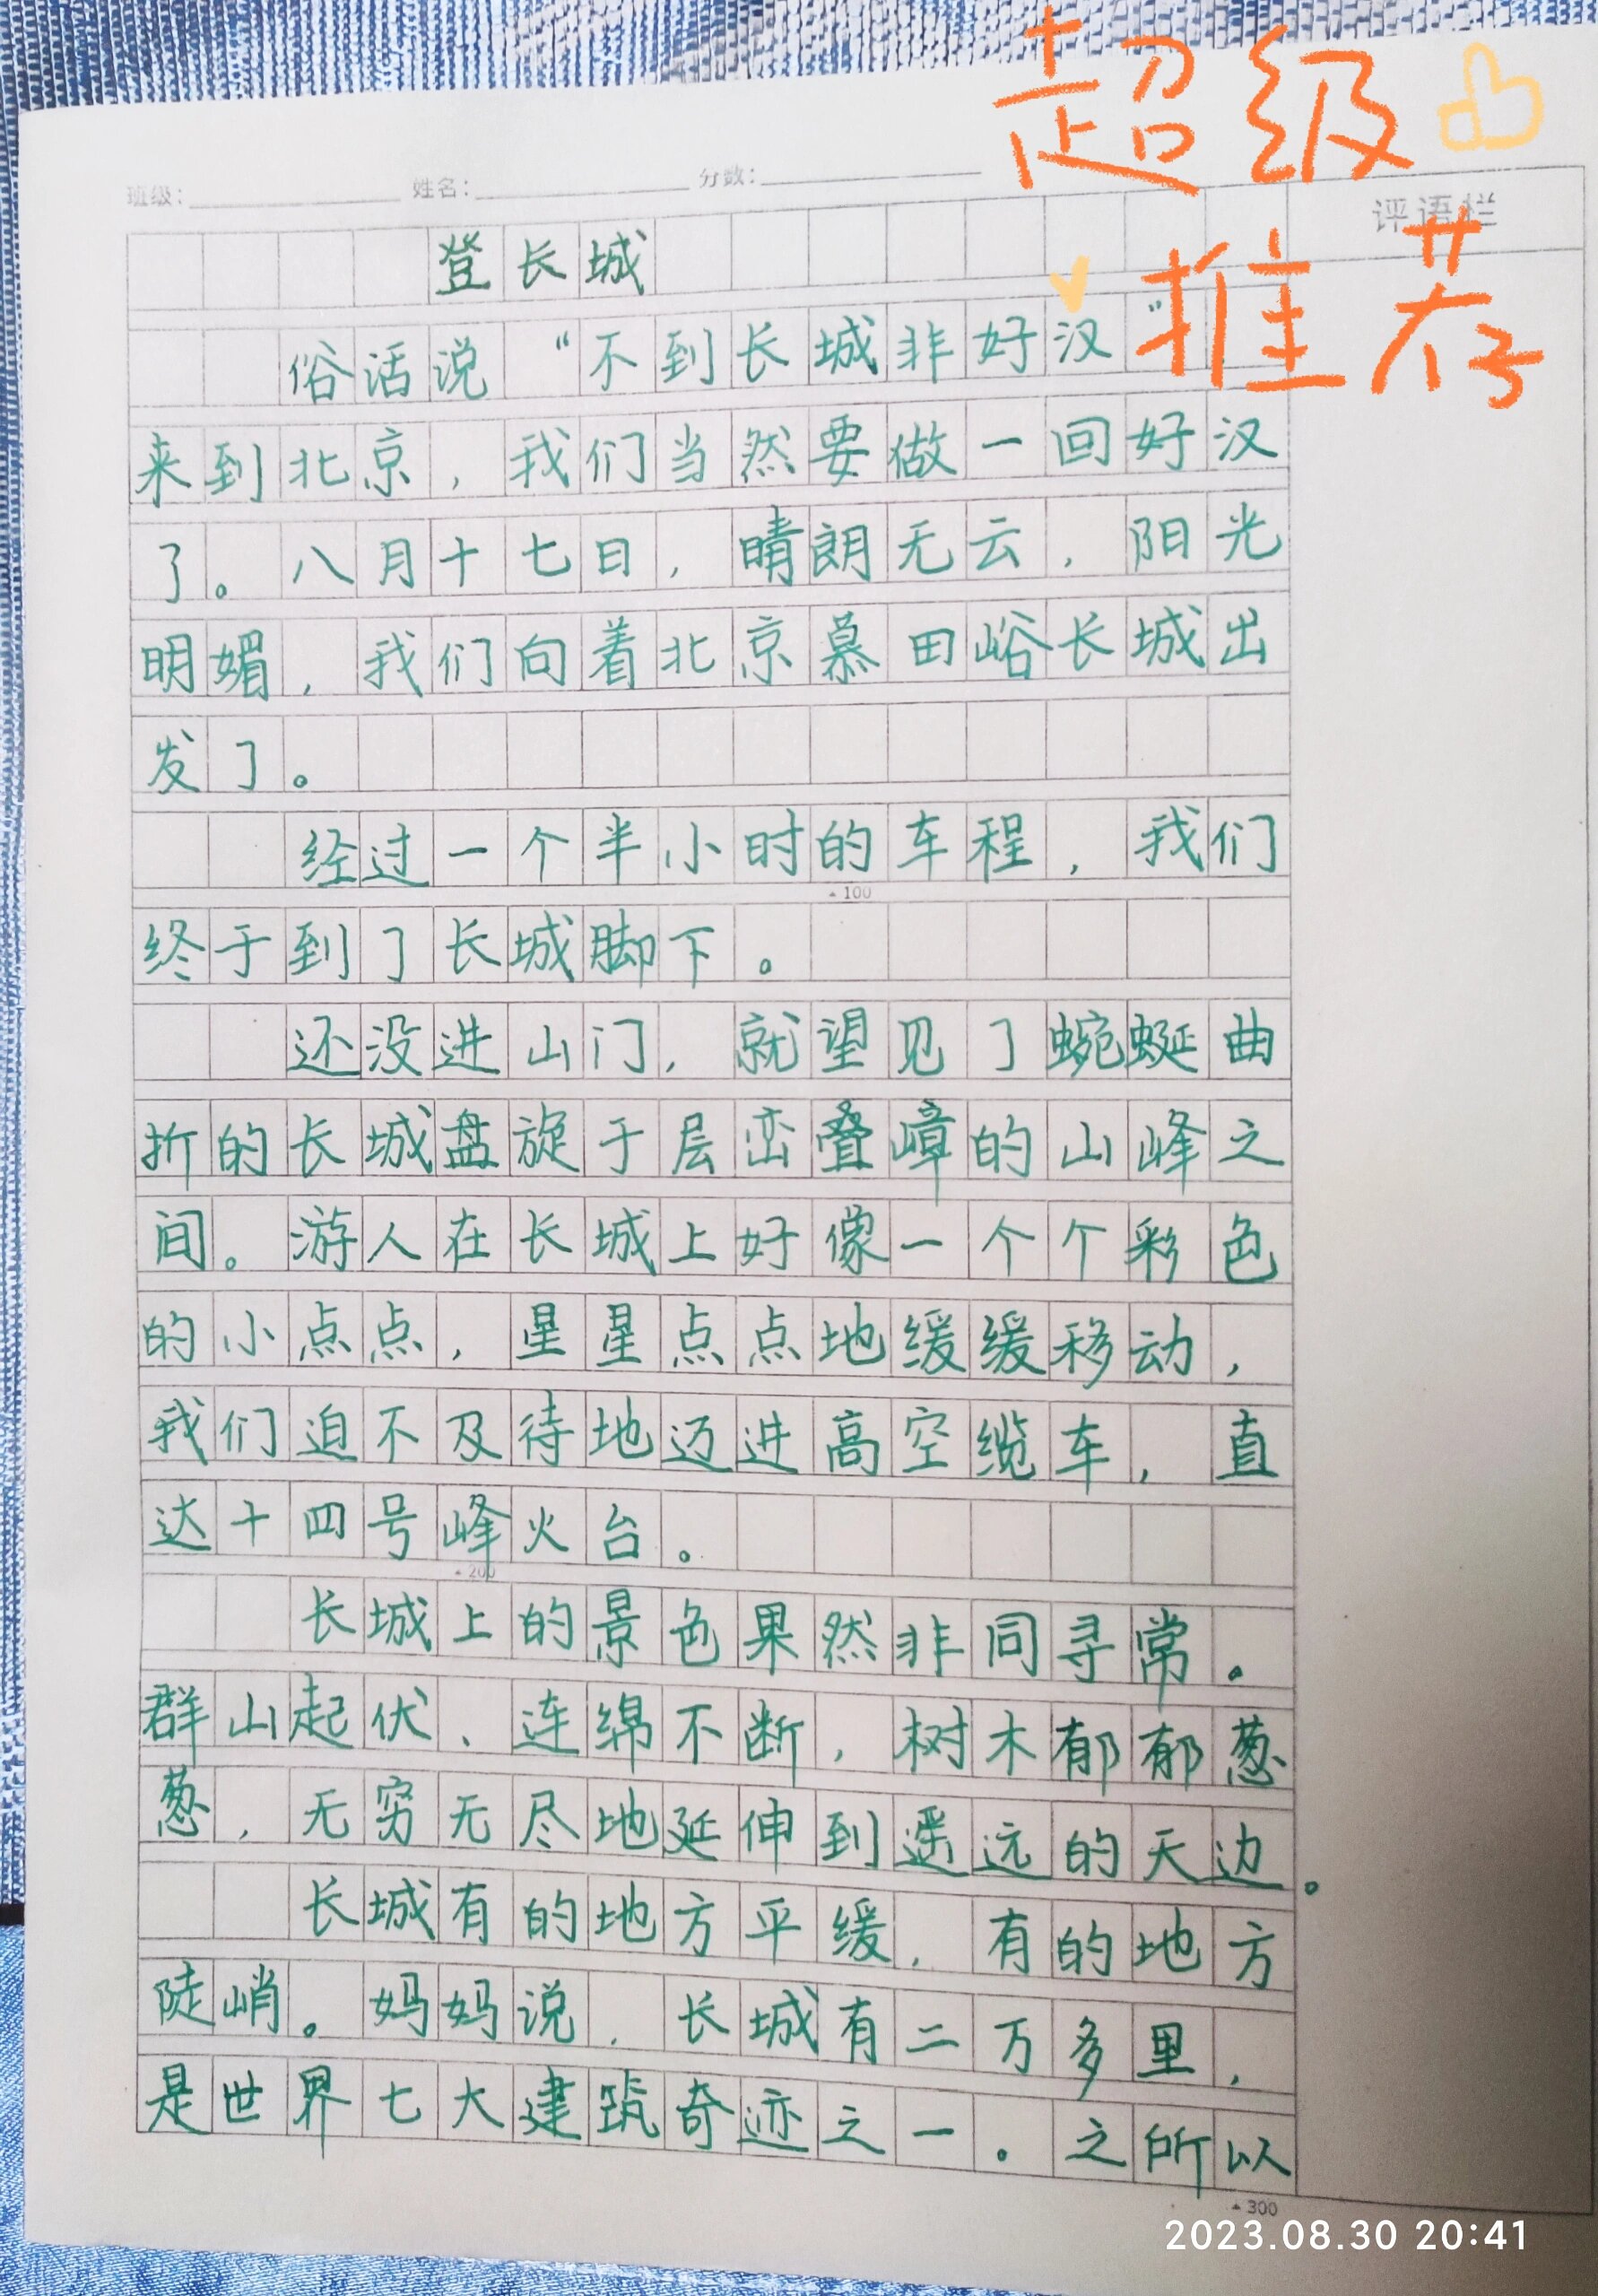 超级
推荐
班级： 姓名： 分数：
评语栏
登长城
俗话说“不到长城非好汉”
来到北京，我们当然要做一回好汉
了。八月十七日，晴朗无云，阳光
明媚，我们向着北京慕田峪长城出
发了。
经过一个半小时的车程，我们
100
终于到了长城脚下。
还没进山门，就望见了蜿蜒曲
折的长城盘旋于层峦叠嶂的山峰之
间。游人在长城上好像一个个彩色
的小点点，星星点点地缓缓移动，
我们迫不及待地迈进高空缆车，直
达十四号峰火台。
200
长城上的景色果然非同寻常。
群山起伏、连绵不断，树木郁郁葱
葱，无穷无尽地延伸到遥远的天边。
长城有的地方平缓，有的地方
陡峭。妈妈说，长城有二万多里，
是世界七大建筑奇迹之一。之所以
300
2023.08.30 20:41